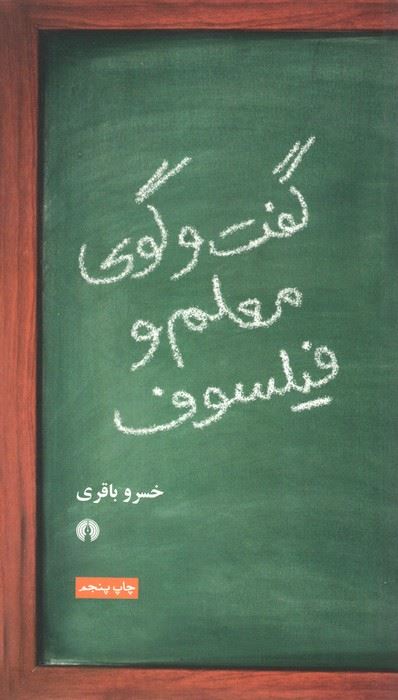 گفت و گوی
معلم و
فیلسوف
خسرو باقری
چاپ پنجم